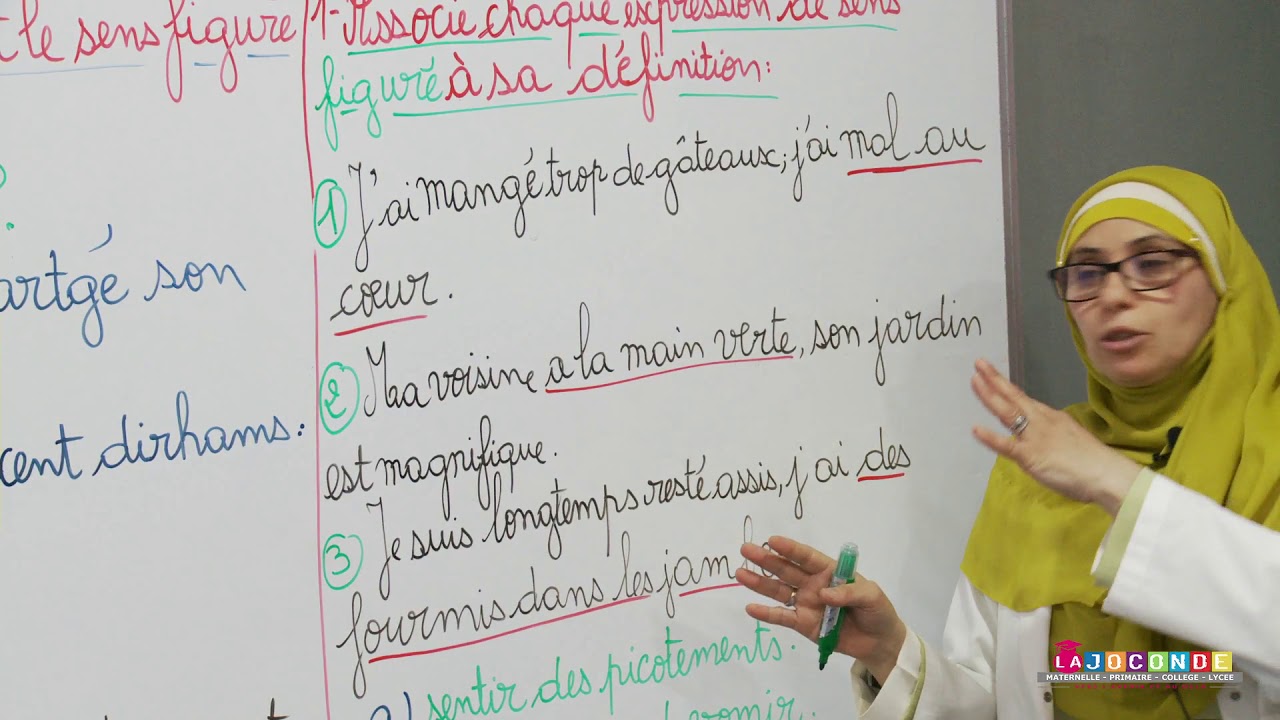 t le sens figuré
artgé son
cent dirhams.
1- Associe chaque expression de sens
figuré à sa définition:
1 J'ai mangé trop de gâteaux, j'ai mal au
cœur.
2 Ma voisine a la main verte, son jardin
est magnifique.
3 Je suis longtemps resté assis, j'ai des
fourmis dans les jam
a) sentir des picotements.
vomir.
LA JOCONDE
MATERNELLE - PRIMAIRE - COLLEGE - LYCEE